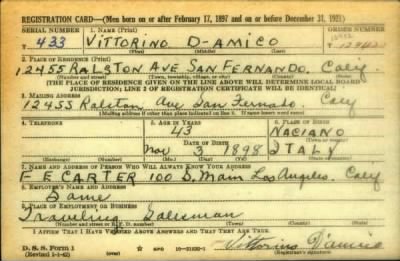 REGISTRATION CARD—(Men born on or after February 17, 1897 and on or before December 31, 1921)
SERIAL NUMBER 1. NAME (Print) ORDER NUMBER
U 433 VITTORINO D-AMICO
2. PLACE OF RESIDENCE (Print)
12455 RALSTON AVE SAN FERNANDO. Caly
(Number and street) (Town, township, village, or city) (County) (State)
[THE PLACE OF RESIDENCE GIVEN ON THE LINE ABOVE WILL DETERMINE LOCAL BOARD
JURISDICTION; LINE 2 OF REGISTRATION CERTIFICATE WILL BE IDENTICAL]
3. MAILING ADDRESS
12455 Ralston Ave San Fernado. Caly
[Mailing address if other than place indicated on line 2. If same insert word same]
4. TELEPHONE 5. AGE IN YEARS 6. PLACE OF BIRTH
43 NACIANO
DATE OF BIRTH (Town or county)
Nov 3 1898 ITALY
(Exchange) (Number) (Mo.) (Day) (Yr.) (State or country)
7. NAME AND ADDRESS OF PERSON WHO WILL ALWAYS KNOW YOUR ADDRESS
F E CARTER 100 S, Main Los Angeles. Caly
8. EMPLOYER'S NAME AND ADDRESS
Same
9. PLACE OF EMPLOYMENT OR BUSINESS
Traveling Salesman
(Number and street or R. F. D. number) (Town) (County) (State)
I AFFIRM THAT I HAVE VERIFIED ABOVE ANSWERS AND THAT THEY ARE TRUE.
D. S. S. Form 1
(Revised 1-1-42) GPO (over) Vittorino D'amico
(Registrant's signature)